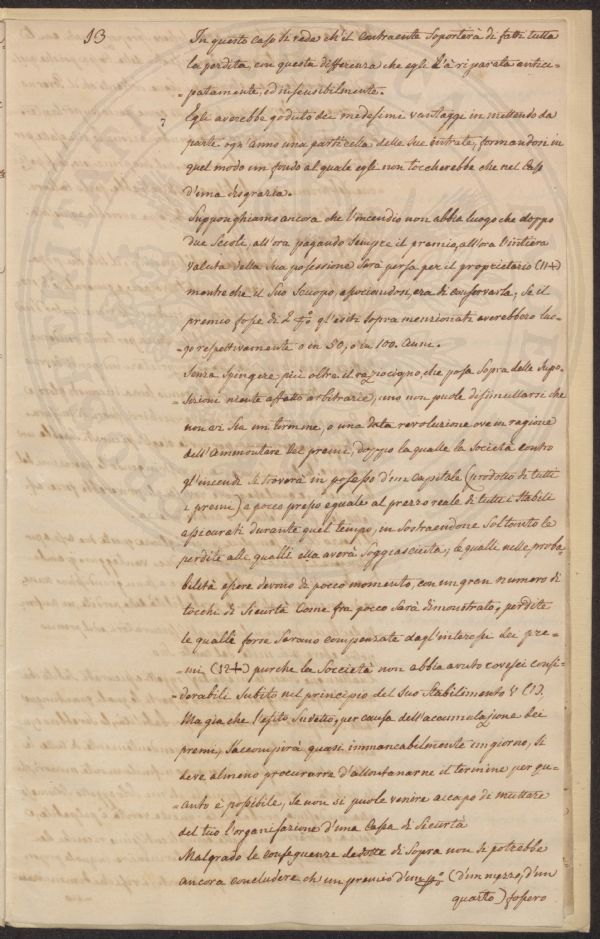 13
In questo caso si veda ch'il Contraente soporterà di fatti tutta
la perdita, con questa differenza che egli l'à riparata antici-
-patamente, ed insensibilmente.
7
Egli averebbe goduto dei medesimi vantaggi in mettendo da
parte ogn'anno una particella delle sue entrate, formandosi in
quel modo un fondo al quale egli non toccherebbe che nel Caso
d'una disgrazia.
Supponghiamo ancora che l'incendio non abbia luogo che doppo
due Secoli, all'ora pagando sempre il premio, all'ora l'intiera
valuta della sua possessione sarà persa per il proprietario (11+)
mentre che il suo scuopo, associandosi, era di conservarla, se il
premio fosse di 2 p% gl'esiti sopra menzionati averebbero luo-
-go respettivamente o in 50, o in 100. Anni.
Senza spingere più oltre il raziocigno, che posa sopra delle supo-
sizioni niente affatto arbitrarie, uno non puole disimularsi che
non vi sia un termine, o una data revoluzione ove in ragione
dell'Ammontare dei premi, doppo la qualle la Società contro
gl'incendi si troverà in possesso d'un Capitale (prodotto di tutti
i premi) a pocco presso eguale al prezzo reale di tutti i Stabili
assicurati durante quel tempo, in sostraendone soltanto le
perdite alle qualli ella averà soggiasciuta; le qualli nelle proba-
bilità essere devono di pocco momento, con un gran numero di
tocchi di Sicurtà come fra poco sarà dimonstrato, perdite
le qualli forse sarano compensate dagl'interessi dei pre-
-mi (12+) purche la Soccietà non abbia avuto rovesci consi-
derabili subito nel principio del suo Stabilimento
Ma gia che l'esito sudetto, per causa dell'accumulazione dei
premi, s'accompirà quasi immancabilmente un giorno, si
deve almeno procurarre d'allontanarne il termine per qu-
-anto è possibile, se non si puole venire a capo di muttare
del tuo l'organisazione d'una Cassa di Sicurtà
Malgrado le conseguenze dedotte di sopra non si potrebbe
ancora concludere ch'un premio d'un p% (d'un mezzo, d'un
quarto) fossero